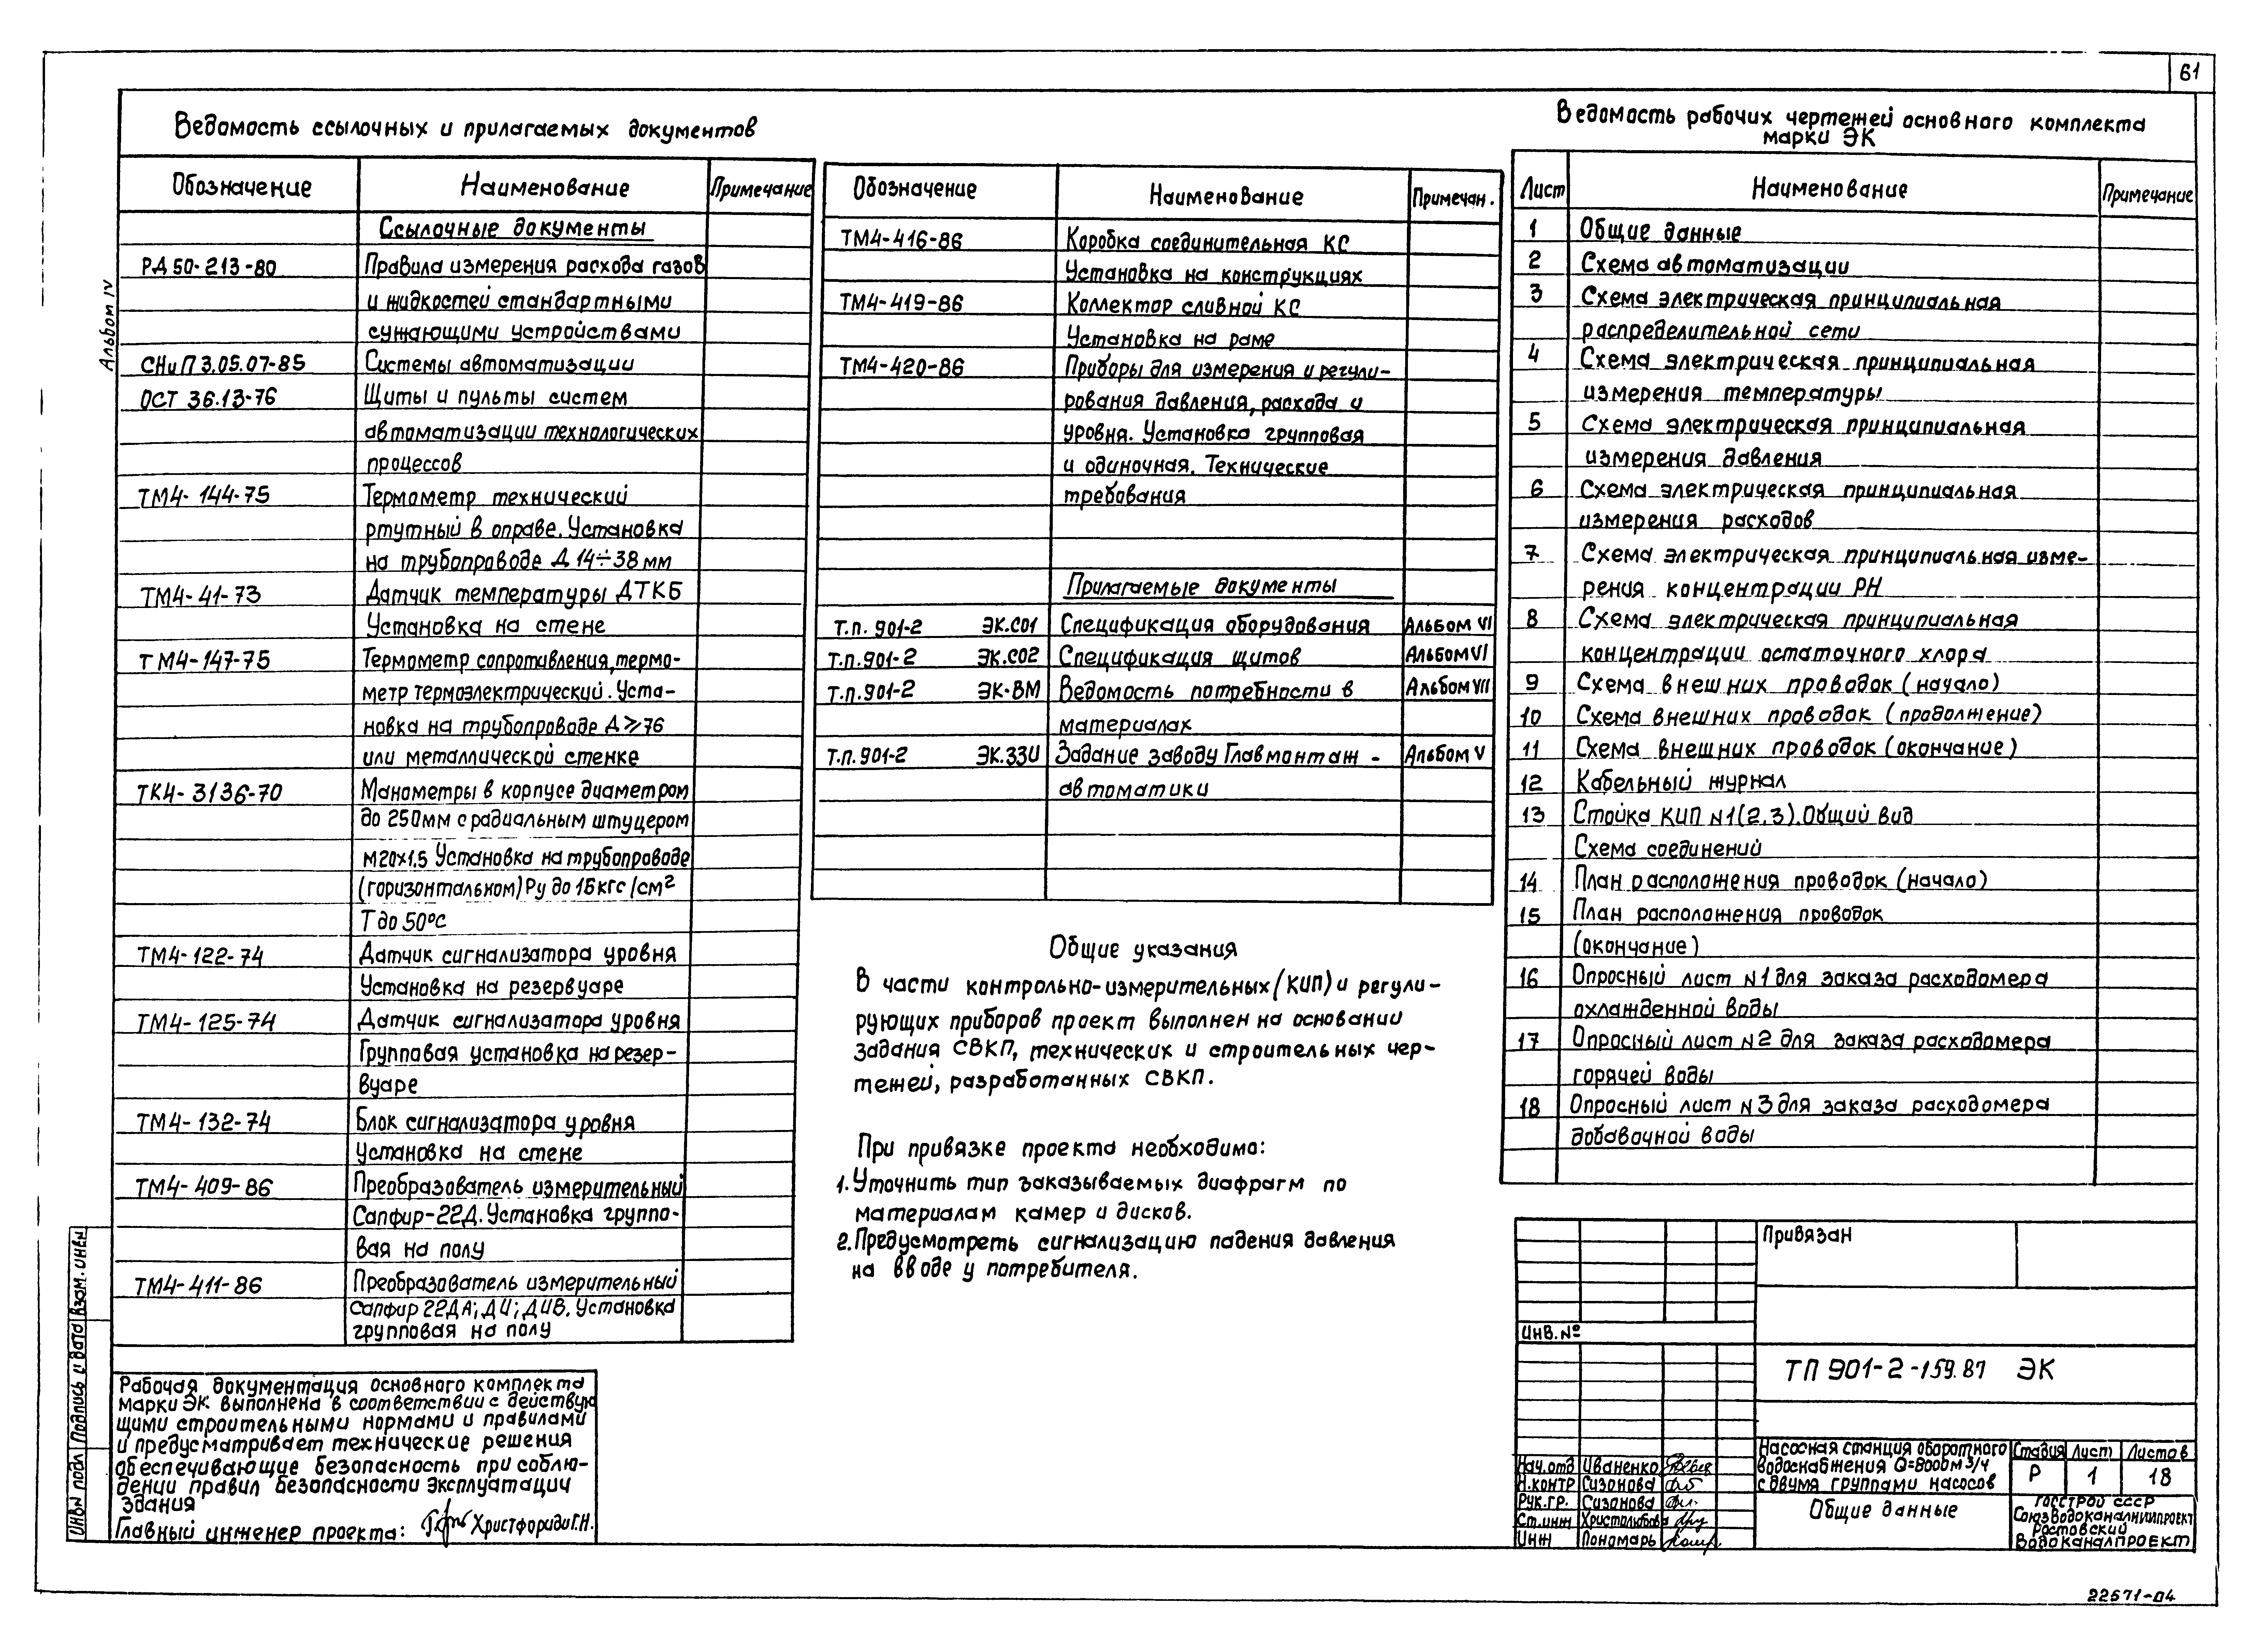 61
Альбом IV
Ведомость ссылочных и прилагаемых документов
Обозначение Наименование Примечание
Ссылочные документы
РД 50-213-80 Правила измерения расхода газов
и жидкостей стандартными
сужающими устройствами
СНиП 3.05.07-85 Системы автоматизации
ОСТ 36.13-76 Щиты и пульты систем
автоматизации технологических
процессов
ТМ4-144-75 Термометр технический
ртутный в оправе. Установка
на трубопроводе Д 14÷38 мм
ТМ4-41-73 Датчик температуры ДТКБ
Установка на стене
ТМ4-147-75 Термометр сопротивления, термо-
метр термоэлектрический. Уста-
новка на трубопроводе Д ≥ 76
или металлической стенке
ТК4-3136-70 Манометры в корпусе диаметром
до 250мм с радиальным штуцером
М20х1.5 Установка на трубопроводе
(горизонтальном) Ру до 16 кгс/см²
Т до 50°С
ТМ4-122-74 Датчик сигнализатора уровня
Установка на резервуаре
ТМ4-125-74 Датчик сигнализатора уровня
Групповая установка на резер-
вуаре
ТМ4-132-74 Блок сигнализатора уровня
Установка на стене
ТМ4-409-86 Преобразователь измерительный
Сапфир-22Д. Установка группо-
вая на полу
ТМ4-411-86 Преобразователь измерительный
Сапфир 22ДА; ДИ; ДИВ. Установка
групповая на полу
Обозначение Наименование Примечан.
ТМ4-416-86 Коробка соединительная КС
Установка на конструкциях
ТМ4-419-86 Коллектор сливной КС
Установка на раме
ТМ4-420-86 Приборы для измерения и регули-
рования давления, расхода и
уровня. Установка групповая
и одиночная. Технические
требования
Прилагаемые документы
Т.п. 901-2 ЭК.СО1 Спецификация оборудования Альбом VI
Т.п. 901-2 ЭК.СО2 Спецификация щитов Альбом VI
Т.п. 901-2 ЭК-ВМ Ведомость потребности в Альбом VII
материалах
Т.п. 901-2 ЭК.ЗЗИ Задание заводу Главмонтаж- Альбом V
автоматики
Общие указания
В части контрольно-измерительных (КИП) и регули-
рующих приборов проект выполнен на основании
задания СВКП, технических и строительных чер-
тежей, разработанных СВКП.
При привязке проекта необходимо:
1. Уточнить тип заказываемых диафрагм по
материалам камер и дисков.
2. Предусмотреть сигнализацию падения давления
на вводе у потребителя.
Ведомость рабочих чертежей основного комплекта
марки ЭК
Лист Наименование Примечание
1 Общие данные
2 Схема автоматизации
3 Схема электрическая принципиальная
распределительной сети
4 Схема электрическая принципиальная
измерения температуры
5 Схема электрическая принципиальная
измерения давления
6 Схема электрическая принципиальная
измерения расходов
7 Схема электрическая принципиальная изме-
рения концентрации РН
8 Схема электрическая принципиальная
концентрации остаточного хлора
9 Схема внешних проводок (начало)
10 Схема внешних проводок (продолжение)
11 Схема внешних проводок (окончание)
12 Кабельный журнал
13 Стойка КИП N1(2,3). Общий вид
Схема соединений
14 План расположения проводок (начало)
15 План расположения проводок
(окончание)
16 Опросный лист N1 для заказа расходомера
охлажденной воды
17 Опросный лист N2 для заказа расходомера
горячей воды
18 Опросный лист N3 для заказа расходомера
добавочной воды
Рабочая документация основного комплекта
марки ЭК выполнена в соответствии с действую
щими строительными нормами и правилами
и предусматривает технические решения
обеспечивающие безопасность при соблю-
дении правил безопасности эксплуатации
здания
Главный инженер проекта: Христфориди Г.Н.
Инв N подл Подпись и дата Взам. инв N
Привязан
Инв. №
ТП 901-2-159.87 ЭК
Нач.отд Иваненко
Н.контр Сизонова
Рук.гр. Сизонова
Ст.инж Христолюбова
Инж Пономарь
Насосная станция оборотного
водоснабжения Q=800м³/ч
с двумя группами насосов
Стадия Лист Листов
Р 1 18
Общие данные
Госстрой СССР
Союзводоканалниипроект
Ростовский
Водоканалпроект
22571-04